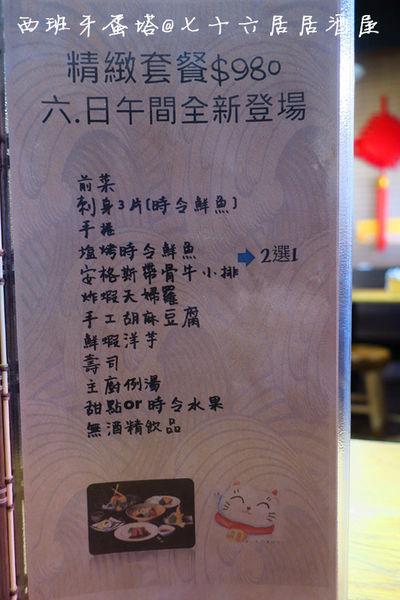 西班牙蛋塔@七十六居居酒屋
精緻套餐$980
六.日午間全新登場
前菜
刺身3片(時令鮮魚)
手捲
塩烤時令鮮魚
安格斯帶骨牛小排
2選1
炸蝦天婦羅
手工胡麻豆腐
鮮蝦洋芋
壽司
主廚例湯
甜點or時令水果
無酒精飲品